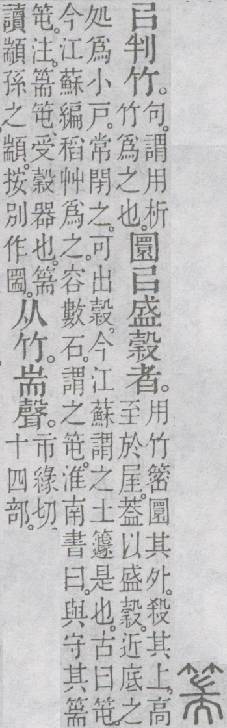 㠯判竹。句。謂用析竹爲之也。圜㠯盛穀者。用竹篾圜其外。殺其上。高至於屋。蓋以盛穀。近底之
処爲小戸。常閉之。可出穀。今江蘇謂之土籧是也。古曰䇬。
今江蘇編稻艸爲之。容數石。謂之䇬。淮南書曰。與守其篅
䇬。注。篅䇬。受穀器也。篅讀顓孫之顓。按別作圌。从竹。耑聲。市緣切。十四部。